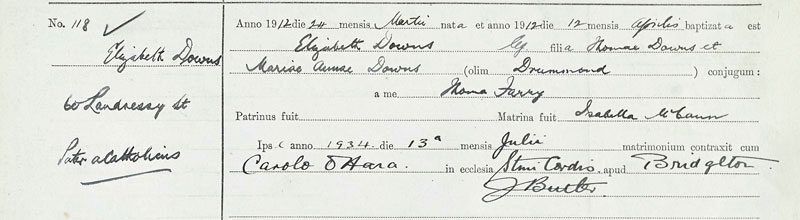 No. 118
Elizabeth Downs
60 Landressy St
Pater acatholicus
Anno 1912 die 24 mensis Martii nata et anno 1912 die 12 mensis Aprilis baptizata est
Elizabeth Downs filia Thomae Downs et
Mariae Annae Downs (olim Drummond ) conjugum:
a me Thoma Farry
Patrinus fuit Matrina fuit Isabella McCann
Ips anno 1934 die 13ª mensis Julii matrimonium contraxit cum
Carolo O'Hara. in ecclesia Ssmi Cordis, apud Bridgeton.
J Butler.